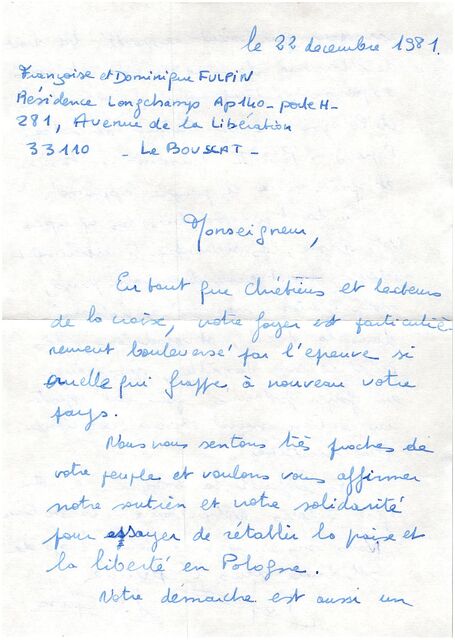 le 22 decembre 1981.
Françoise et Dominique FULPIN
Résidence Longchamps Ap140 - porte H -
281, Avenue de la Libération
33110 - Le BOUSCAT -
Monseigneur,
En tant que chrétiens et lecteurs
de la croix, notre foyer est particuliè-
rement bouleversé par l'épreuve si
cruelle qui frappe à nouveau votre
pays.
Nous nous sentons très proches de
votre peuple et voulons vous affirmer
notre soutien et notre solidarité
pour essayer de rétablir la paix et
la liberté en Pologne.
Notre démarche est aussi un